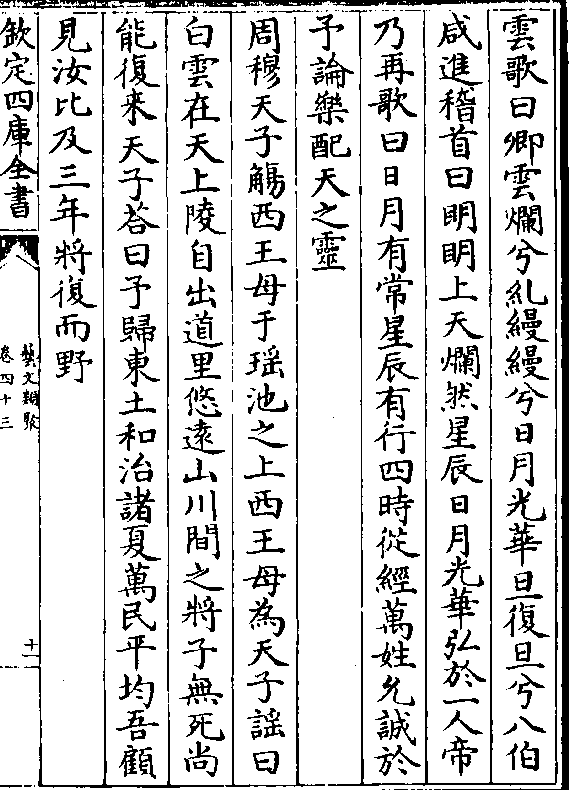 雲歌曰卿雲爛兮糺縵縵兮日月光華旦復旦兮八伯
咸進稽首曰明明上天爛然星辰日月光華弘於一人帝
乃再歌曰日月有常星辰有行四時從經萬姓允誠於
予論樂配天之靈
周穆天子觴西王母于瑶池之上西王母為天子謡曰
白雲在天上陵自出道里悠遠山川間之將子無死尚
能復来天子荅曰予歸東土和治諸夏萬民平均吾顧
見汝比及三年將復而野
欽定四庫全書
藝文類聚
卷四十三
十一